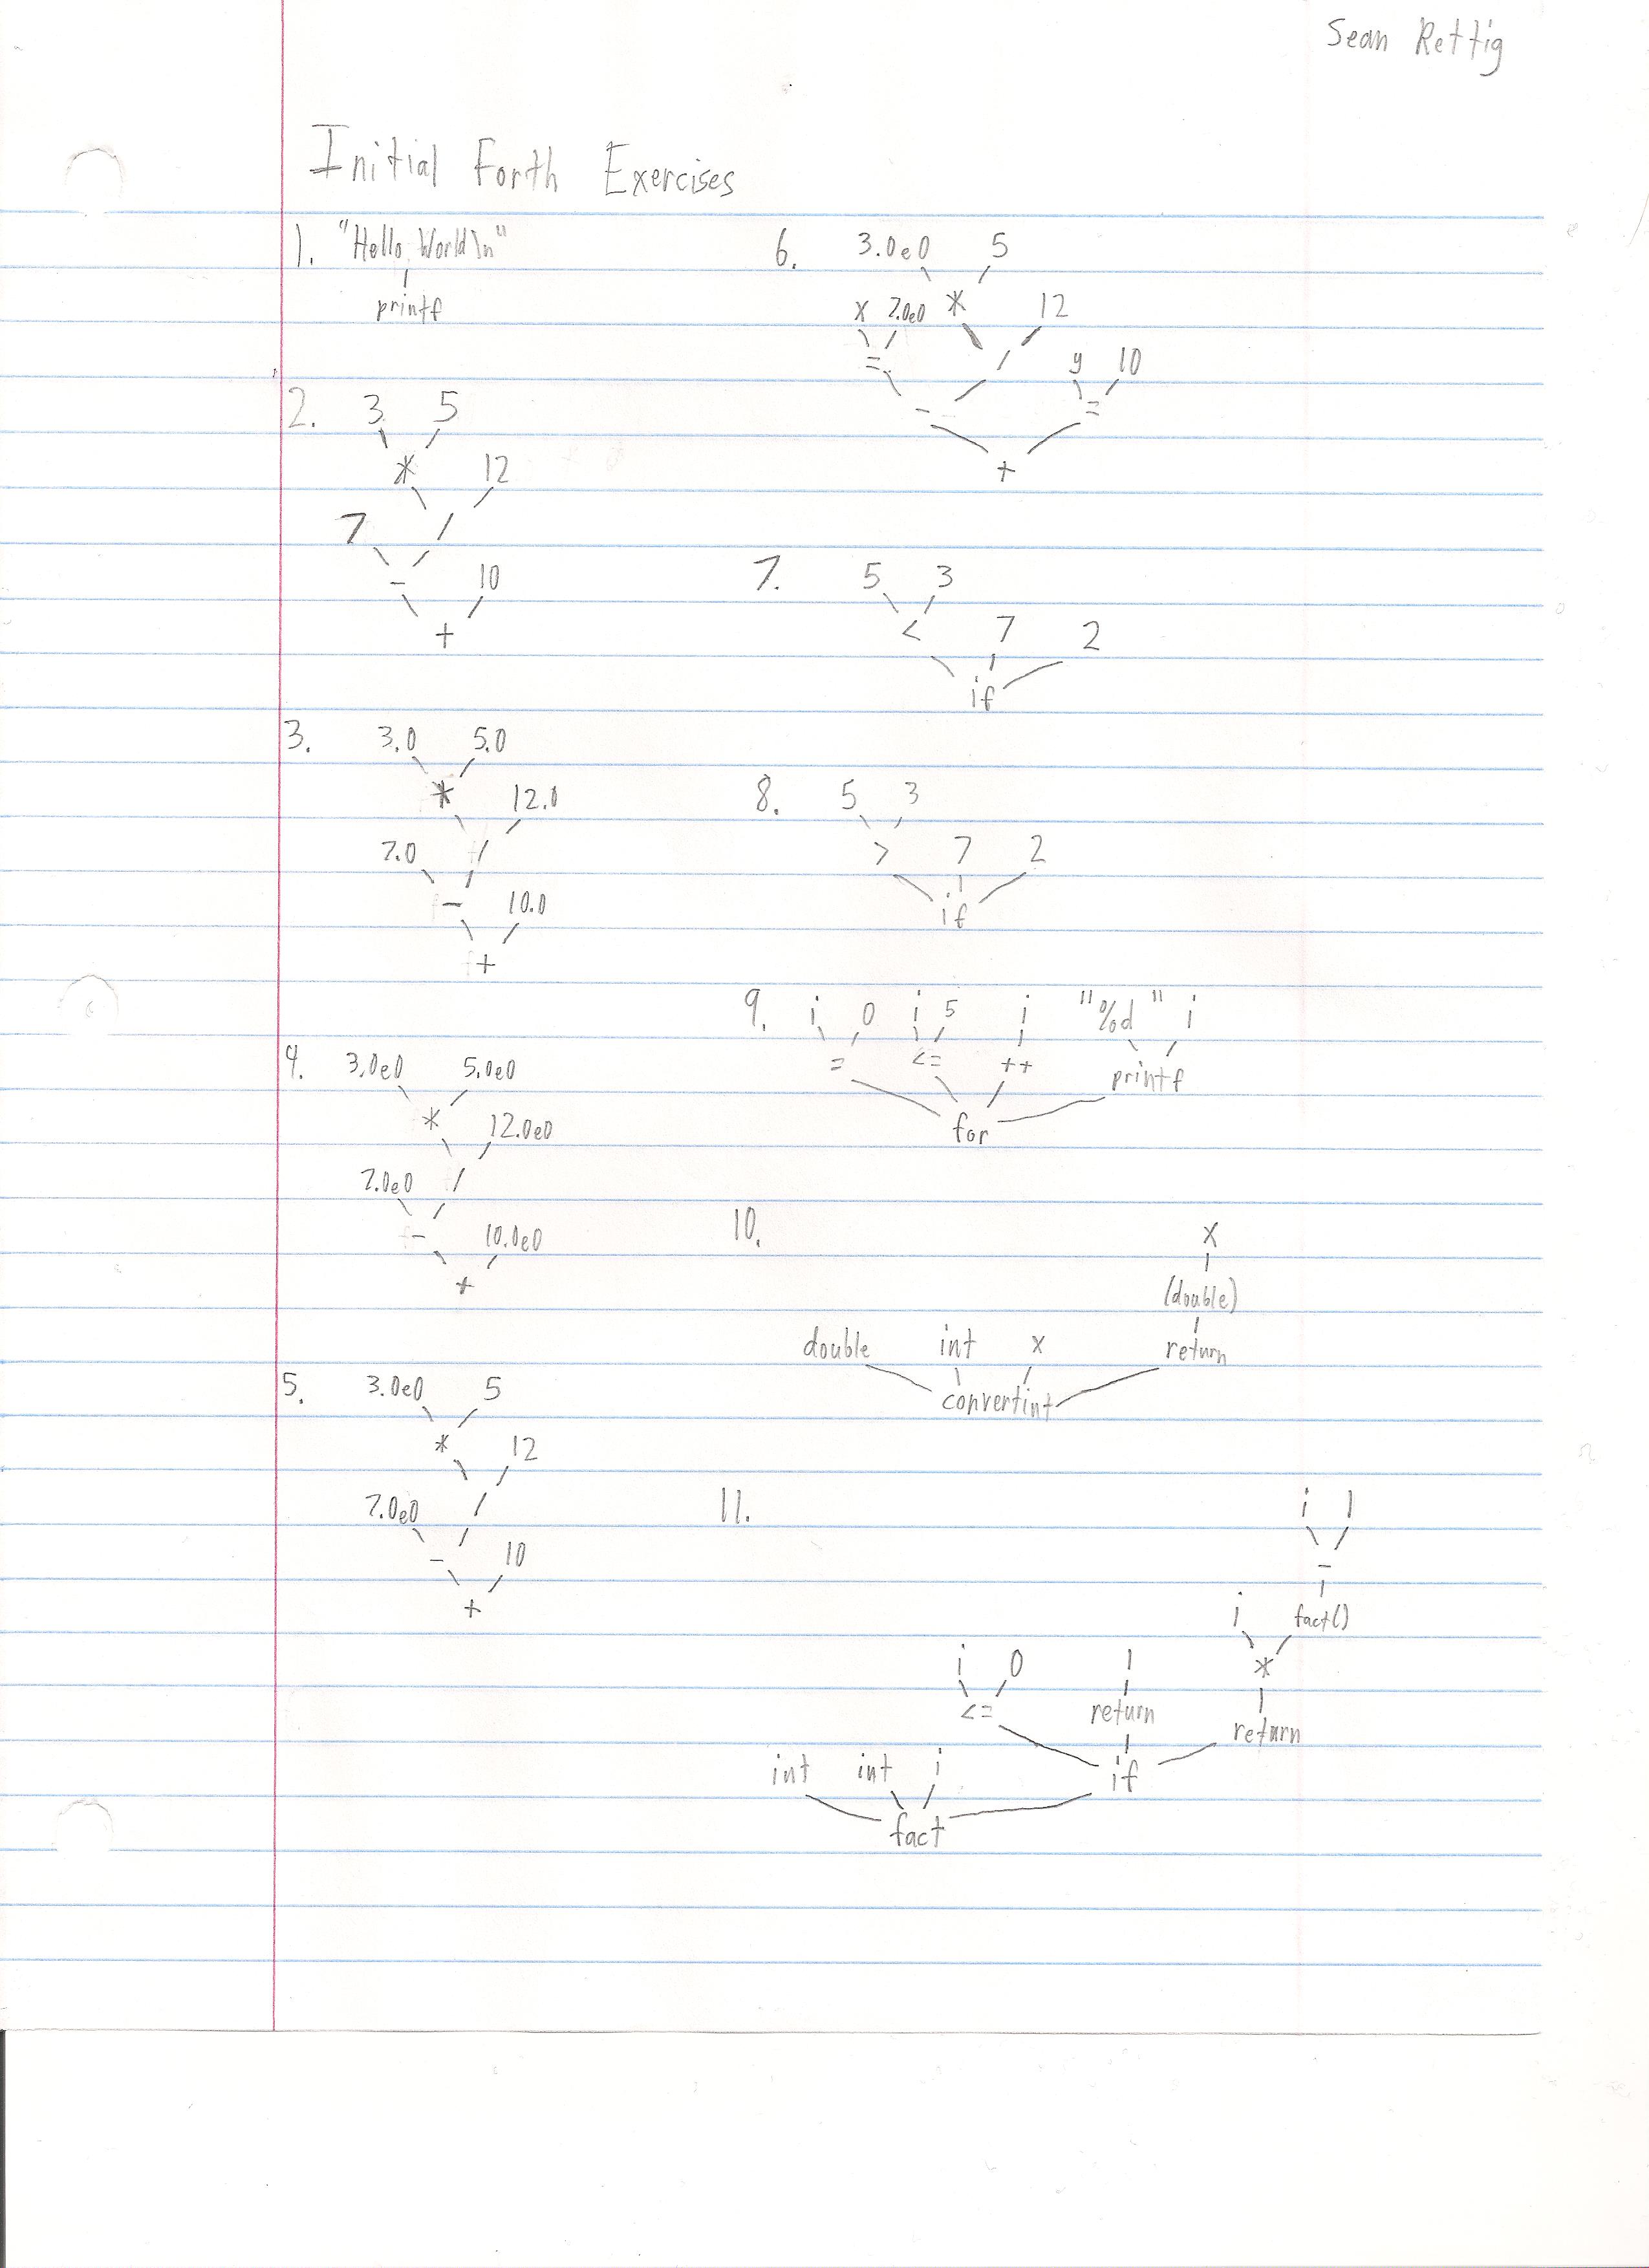 Sean Rettig
Initial Forth Exercises
1. "Hello, World\n"
printf
2. 3 5
* 12
7 /
- 10
+
3. 3.0 5.0
* 12.0
7.0 /
- 10.0
+
4. 3.0e0 5.0e0
* 12.0e0
7.0e0 /
- 10.0e0
+
5. 3.0e0 5
* 12
7.0e0 /
- 10
+
6. 3.0e0 5
x 7.0e0 * 12
= / y 10
- =
+
7. 5 3
< 7 2
if
8. 5 3
> 7 2
if
9. i 0 i 5 i "%d " i
= <= ++ printf
for
10. x
(double)
double int x return
convertint
11. i 1
-
i fact()
i 0 1 *
<= return return
int int i if
fact